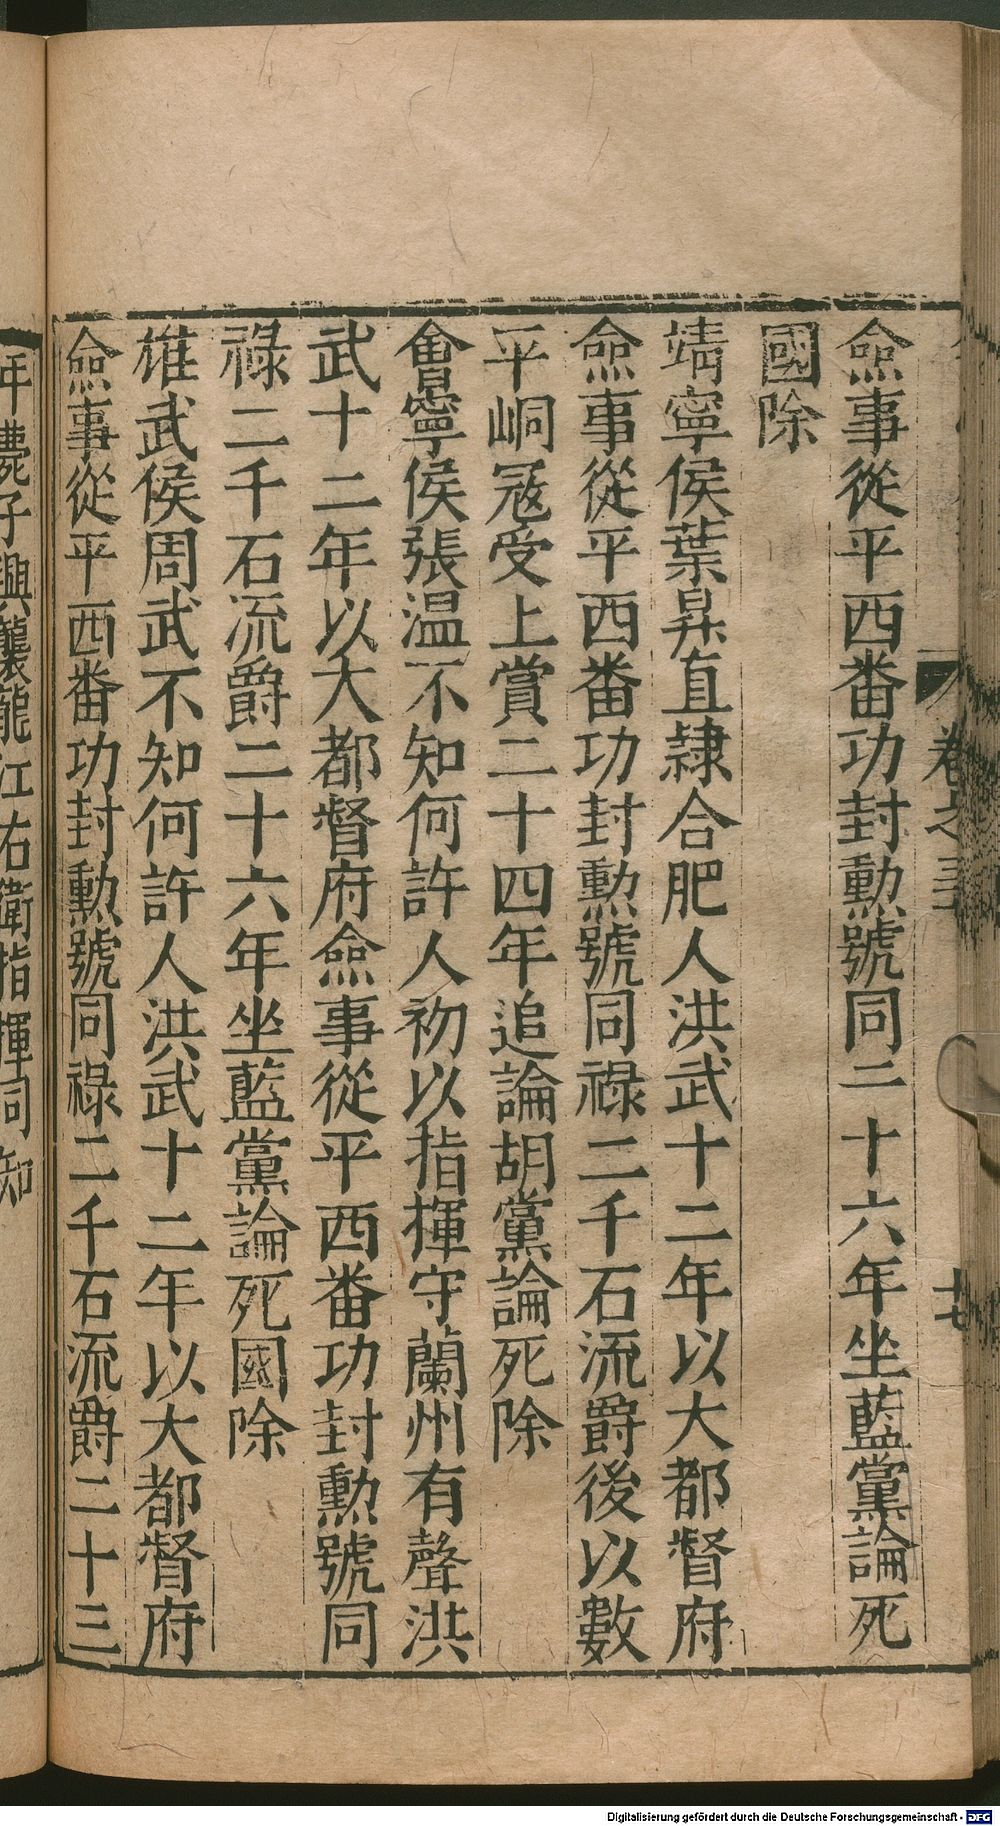 卷之三
十七
僉事從平西番功封勲號同二十六年坐藍黨論死
國除
靖寧侯葉昇直隷合肥人洪武十二年以大都督府
僉事從平西番功封勲號同祿二千石流爵後以數
平峒冦受上賞二十四年追論胡黨論死除
會寧侯張温不知何許人初以指揮守蘭州有聲洪
武十二年以大都督府僉事從平西番功封勲號同
祿二千石流爵二十六年坐藍黨論死國除
雄武侯周武不知何許人洪武十二年以大都督府
僉事從平西番功封勲號同祿二千石流爵二十三
年薨子興襲龍江右衛指揮同知
Digitalisierung gefördert durch die Deutsche Forschungsgemeinschaft - DFG